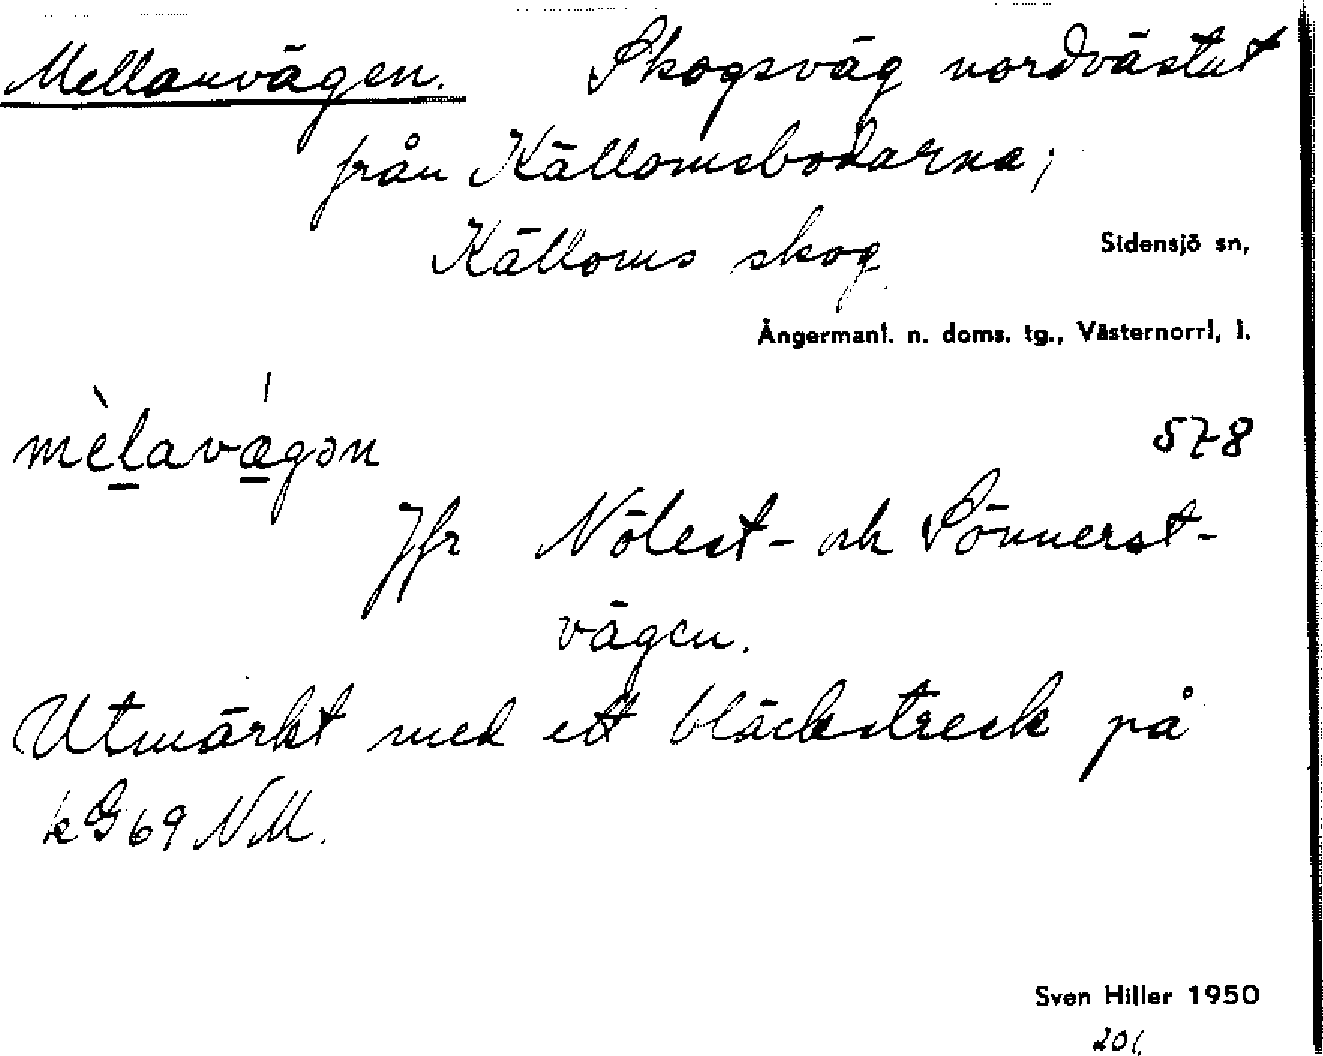 Mellanvägen. Skogsväg nordvästut
från Källomsbodarna;
Källoms skog
Sidensjö sn,
Ångermanl. n. doms. tg., Västernorrl, l.
mèlavágən
578
Jfr Nölest- och Sönnerst-
vägen.
Utmärkt med ett bläckstreck på
k G 69 NM.
Sven Hiller 1950